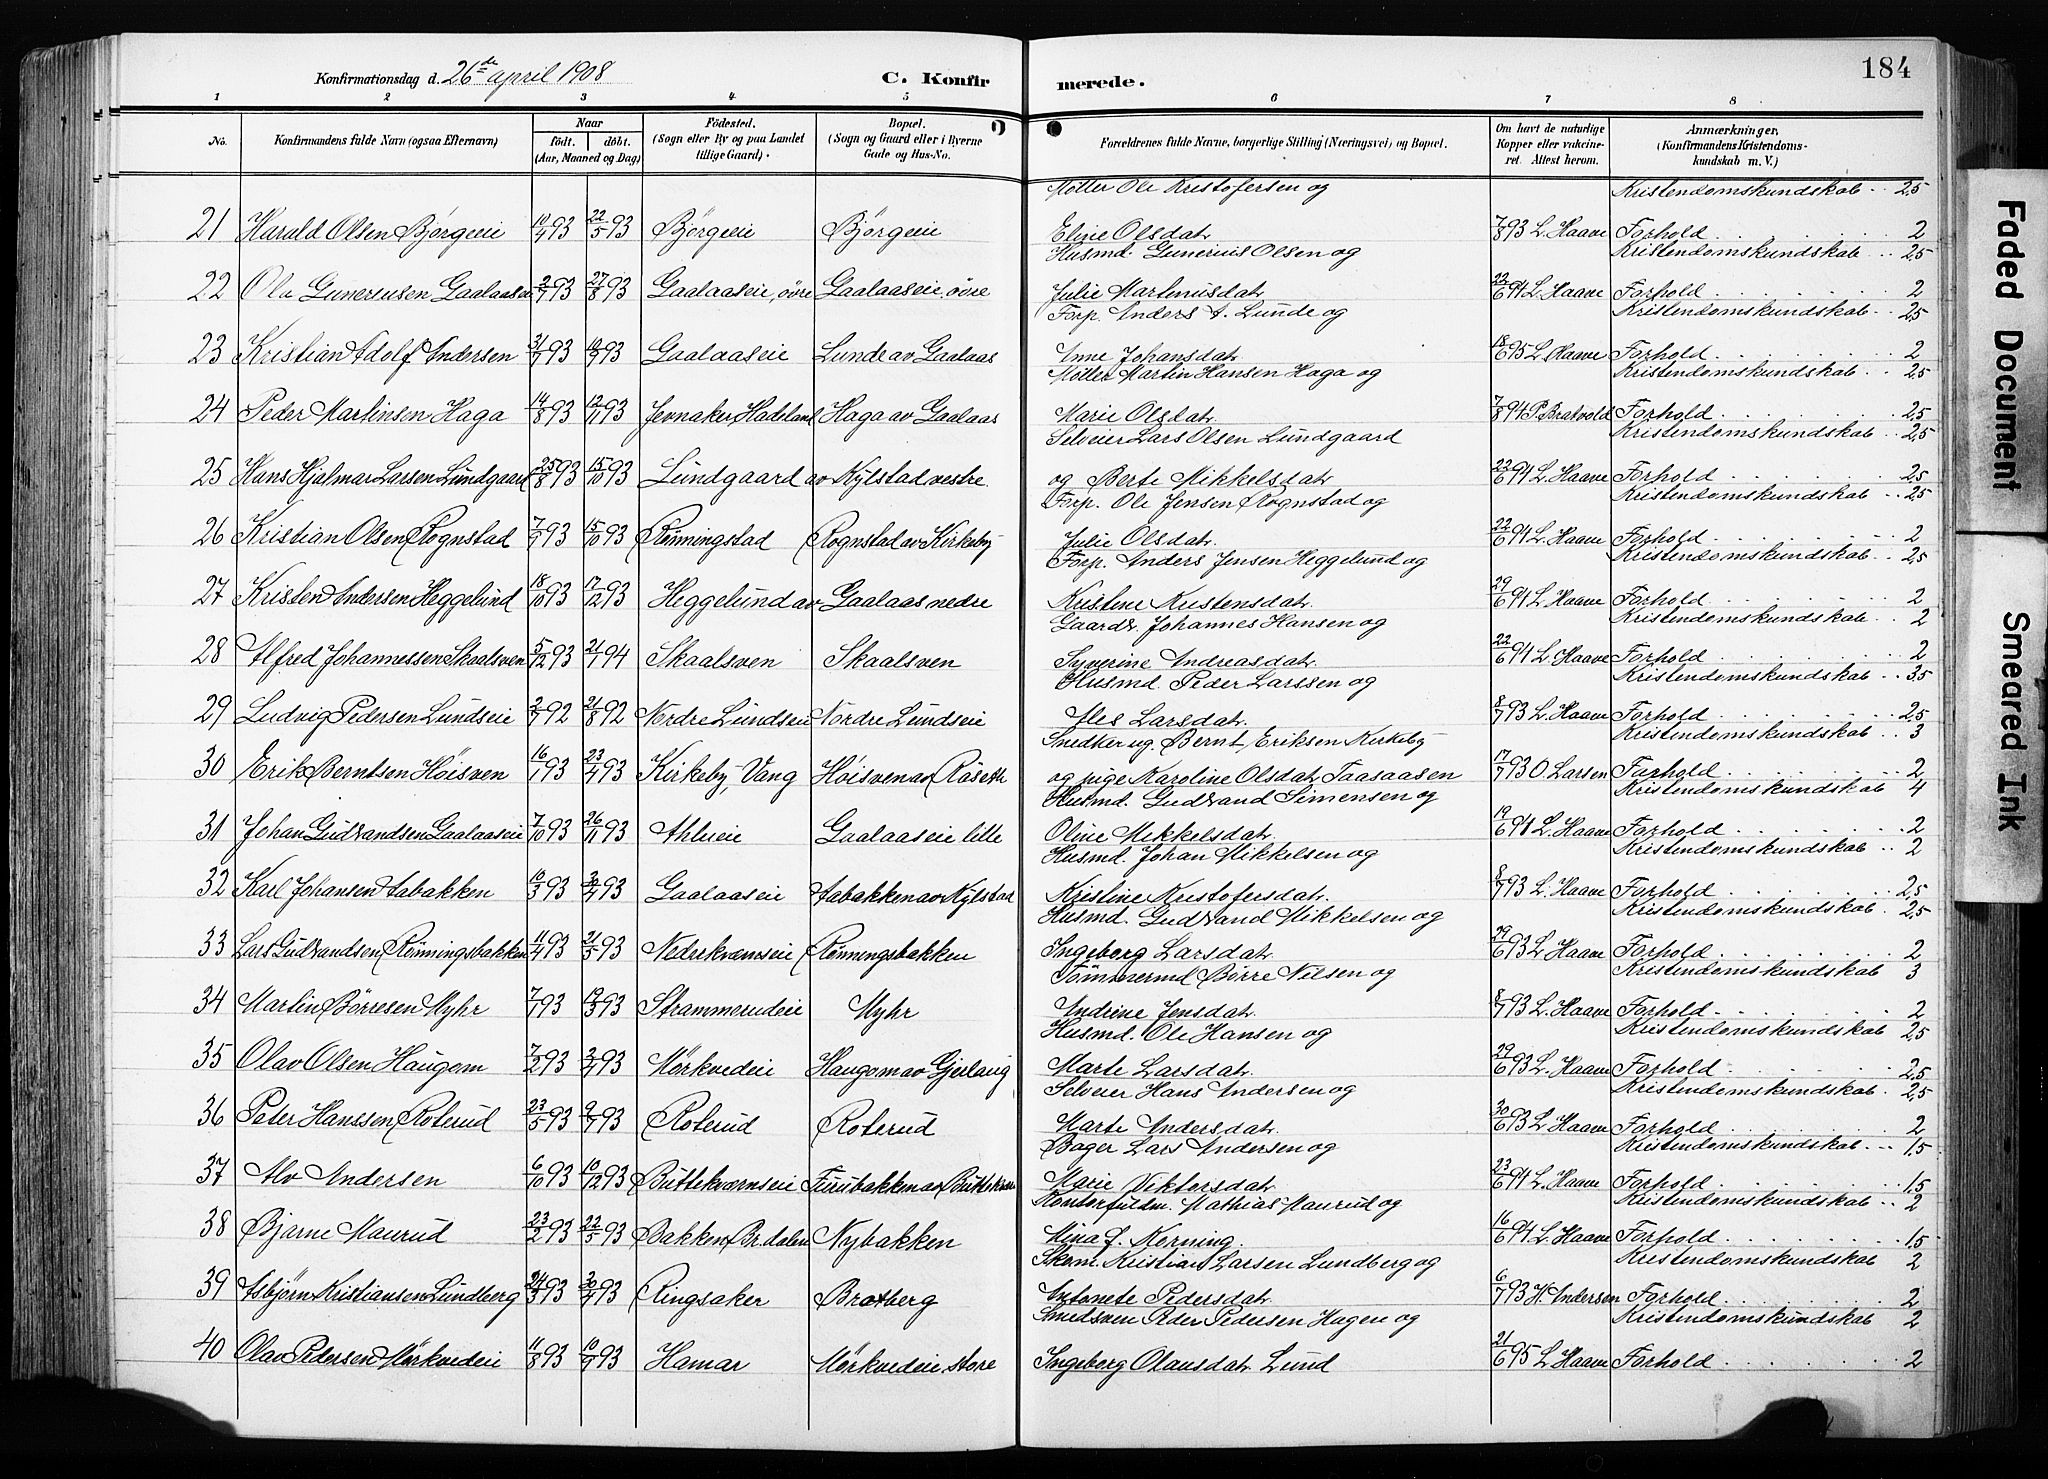 Konfirmationsdag d. 26de april 1908 C. Konfirmerede. 184
1 2 3 4 5 6 7 8
No. Konfirmandens fulde Navn (ogsaa Efternavn) Naar født. døbt. (Aar, Maaned og Dag) Fødested. (Sogn eller By og paa Landet tillige Gaard). Bopæl. (Sogn og Gaard eller i Byerne Gade og Hus-No. Forældrenes fulde Navne, borgerlige Stilling (Næringsvei) og Bopæl. Om havt de naturlige Kopper eller vakcineret. Attest herom. Anmærkninger. (Konfirmandens Kristendomskundskab m. V.)
Møller Ole Kristofersen og Kristendomskundskab 2,5
21 Harald Olsen Bjørgeeie 10/4 93 22/5 93 Bjørgeeie Bjørgeeie Eline Olsdat. 7/8 93 L. Haave Forhold 2
Husmd. Gunerius Olsen og Kristendomskundskab 2,5
22 Ola Gunerusen Gaalaaseie 2/7 93 27/8 93 Gaalaaseie, øvre Gaalaaseie, øvre Julie Martinusdat. 22/6 94 L. Haave Forhold 2
Forp. Anders A. Lunde og Kristendomskundskab 2,5
23 Kristian Adolf Andersen 31/7 93 10/9 93 Gaalaaseie Lunde av Gaalaas Anne Johansdat. 18/6 95 L. Haave Forhold 2
Møller Martin Hansen Haga og Kristendomskundskab 2,5
24 Peder Martinsen Haga 14/8 93 12/11 93 Jevnaker Hadeland Haga av Gaalaas Marie Olsdat. 7/8 94 P. Bratvold Forhold 2,5
Selveier Lars Olsen Lundgaard Kristendomskundskab 2,5
25 Hans Hjalmar Larsen Lundgaard 25/8 93 15/10 93 Lundgaard av Kylstad vestre og Berte Mikkelsdat. 22/6 94 L. Haave Forhold 2,5
Forp. Ole Jensen Rognstad og Kristendomskundskab 2,5
26 Kristian Olsen Rognstad 7/9 93 15/10 93 Rønningstad Rognstad av Kirkeby Julie Olsdat. 22/6 94 L. Haave Forhold 2
Forp. Anders Jensen Heggelund og Kristendomskundskab 2,5
27 Kristen Andersen Heggelund 18/10 93 17/12 93 Heggelund av Gaalaas nedre Kristine Kristensdat. 29/6 94 L. Haave Forhold 2
Gaardbr. Johannes Hansen og Kristendomskundskab 2
28 Alfred Johannessen Skaalsven 5/12 93 21/1 94 Skaalsven Skaalsven Syverine Andreasdat. 22/6 94 L. Haave Forhold 2
Husmd. Peder Larssen og Kristendomskundskab 3,5
29 Ludvig Pedersen Lundseie 2/7 92 21/8 92 Nordre Lundseie Nordre Lundseie Arles Larsdat. 8/7 93 L. Haave Forhold 2,5
Snedker ug. Bernt Eriksen Kirkeby Kristendomskundskab 3
30 Erik Berntsen Höisven 16/1 93 23/4 93 Kirkeby, Vang Höisven av Röseth og pige Karoline Olsdat. Taasaasen 17/7 93 O. Larsen Forhold 2
Husmd. Gudbrand Simensen og Kristendomskundskab 4
31 Johan Gudbrandsen Gaalaaseie 7/10 93 26/11 93 Ahlueie Gaalaaseie lille Oline Mikkelsdat. 19/6 94 L. Haave Forhold 2
Husmd. Johan Mikkelsen og Kristendomskundskab 2
32 Karl Johansen Aabakken 10/3 93 30/4 93 Gaalaaseie Aabakken av Kylstad Kristine Kristofersdat. 8/7 93 L. Haave Forhold 2,5
Husmd. Gudbrand Mikkelsen og Kristendomskundskab 2,5
33 Lars Gudbrandsen Rønningsbakken 11/4 93 21/5 93 Nedrekværnseie Rønningsbakken Ingeborg Larsdat. 29/6 93 L. Haave Forhold 2
Tømmermd Børre Nilsen og Kristendomskundskab 3
34 Martin Børresen Myhr 7/1 93 19/3 93 Strammerudeie Myhr Andrine Jensdat. 8/7 93 L. Haave Forhold 2
Husmd. Ole Hansen og Kristendomskundskab 2,5
35 Olav Olsen Haugom 7/2 93 2/4 93 Mørkvedeie Haugom av Gjerlaug Marte Larsdat. 29/6 93 L. Haave Forhold 2,5
Selveier Hans Andersen og Kristendomskundskab 2,5
36 Peter Hanssen Roterud 23/5 93 9/7 93 Roterud Roterud Marte Andersdat. 30/6 93 L. Haave Forhold 2
Bager Lars Andersen og Kristendomskundskab 1,5
37 Alv Andersen 6/10 93 10/12 93 Buttekværnseie Furubakken av Buttekværn Marie Viktorsdat. 23/6 94 L. Haave Forhold 1,5
Kontorfuldm. Mathias Maurud og Kristendomskundskab 2
38 Bjarne Maurud 23/2 93 22/5 93 Bakken Br.dalen Nybakken Mina f. Korning. 16/6 94 L. Haave Forhold 1,5
Skom. Kristian Larsen Lundberg og Kristendomskundskab 2
39 Asbjørn Kristiansen Lundberg 24/3 93 30/4 93 Ringsaker Bratberg Antonete Pedersdat. 6/7 93 H. Andersen Forhold 2
Smedsven Peder Pedersen Hagen og Kristendomskundskab 2
40 Olav Pedersen Mørkvedeie 11/8 93 10/9 93 Hamar Mørkvedeie, store Ingeborg Olausdat. Lund 21/6 95 L. Haave Forhold 2
Faded Document
Smeared Ink